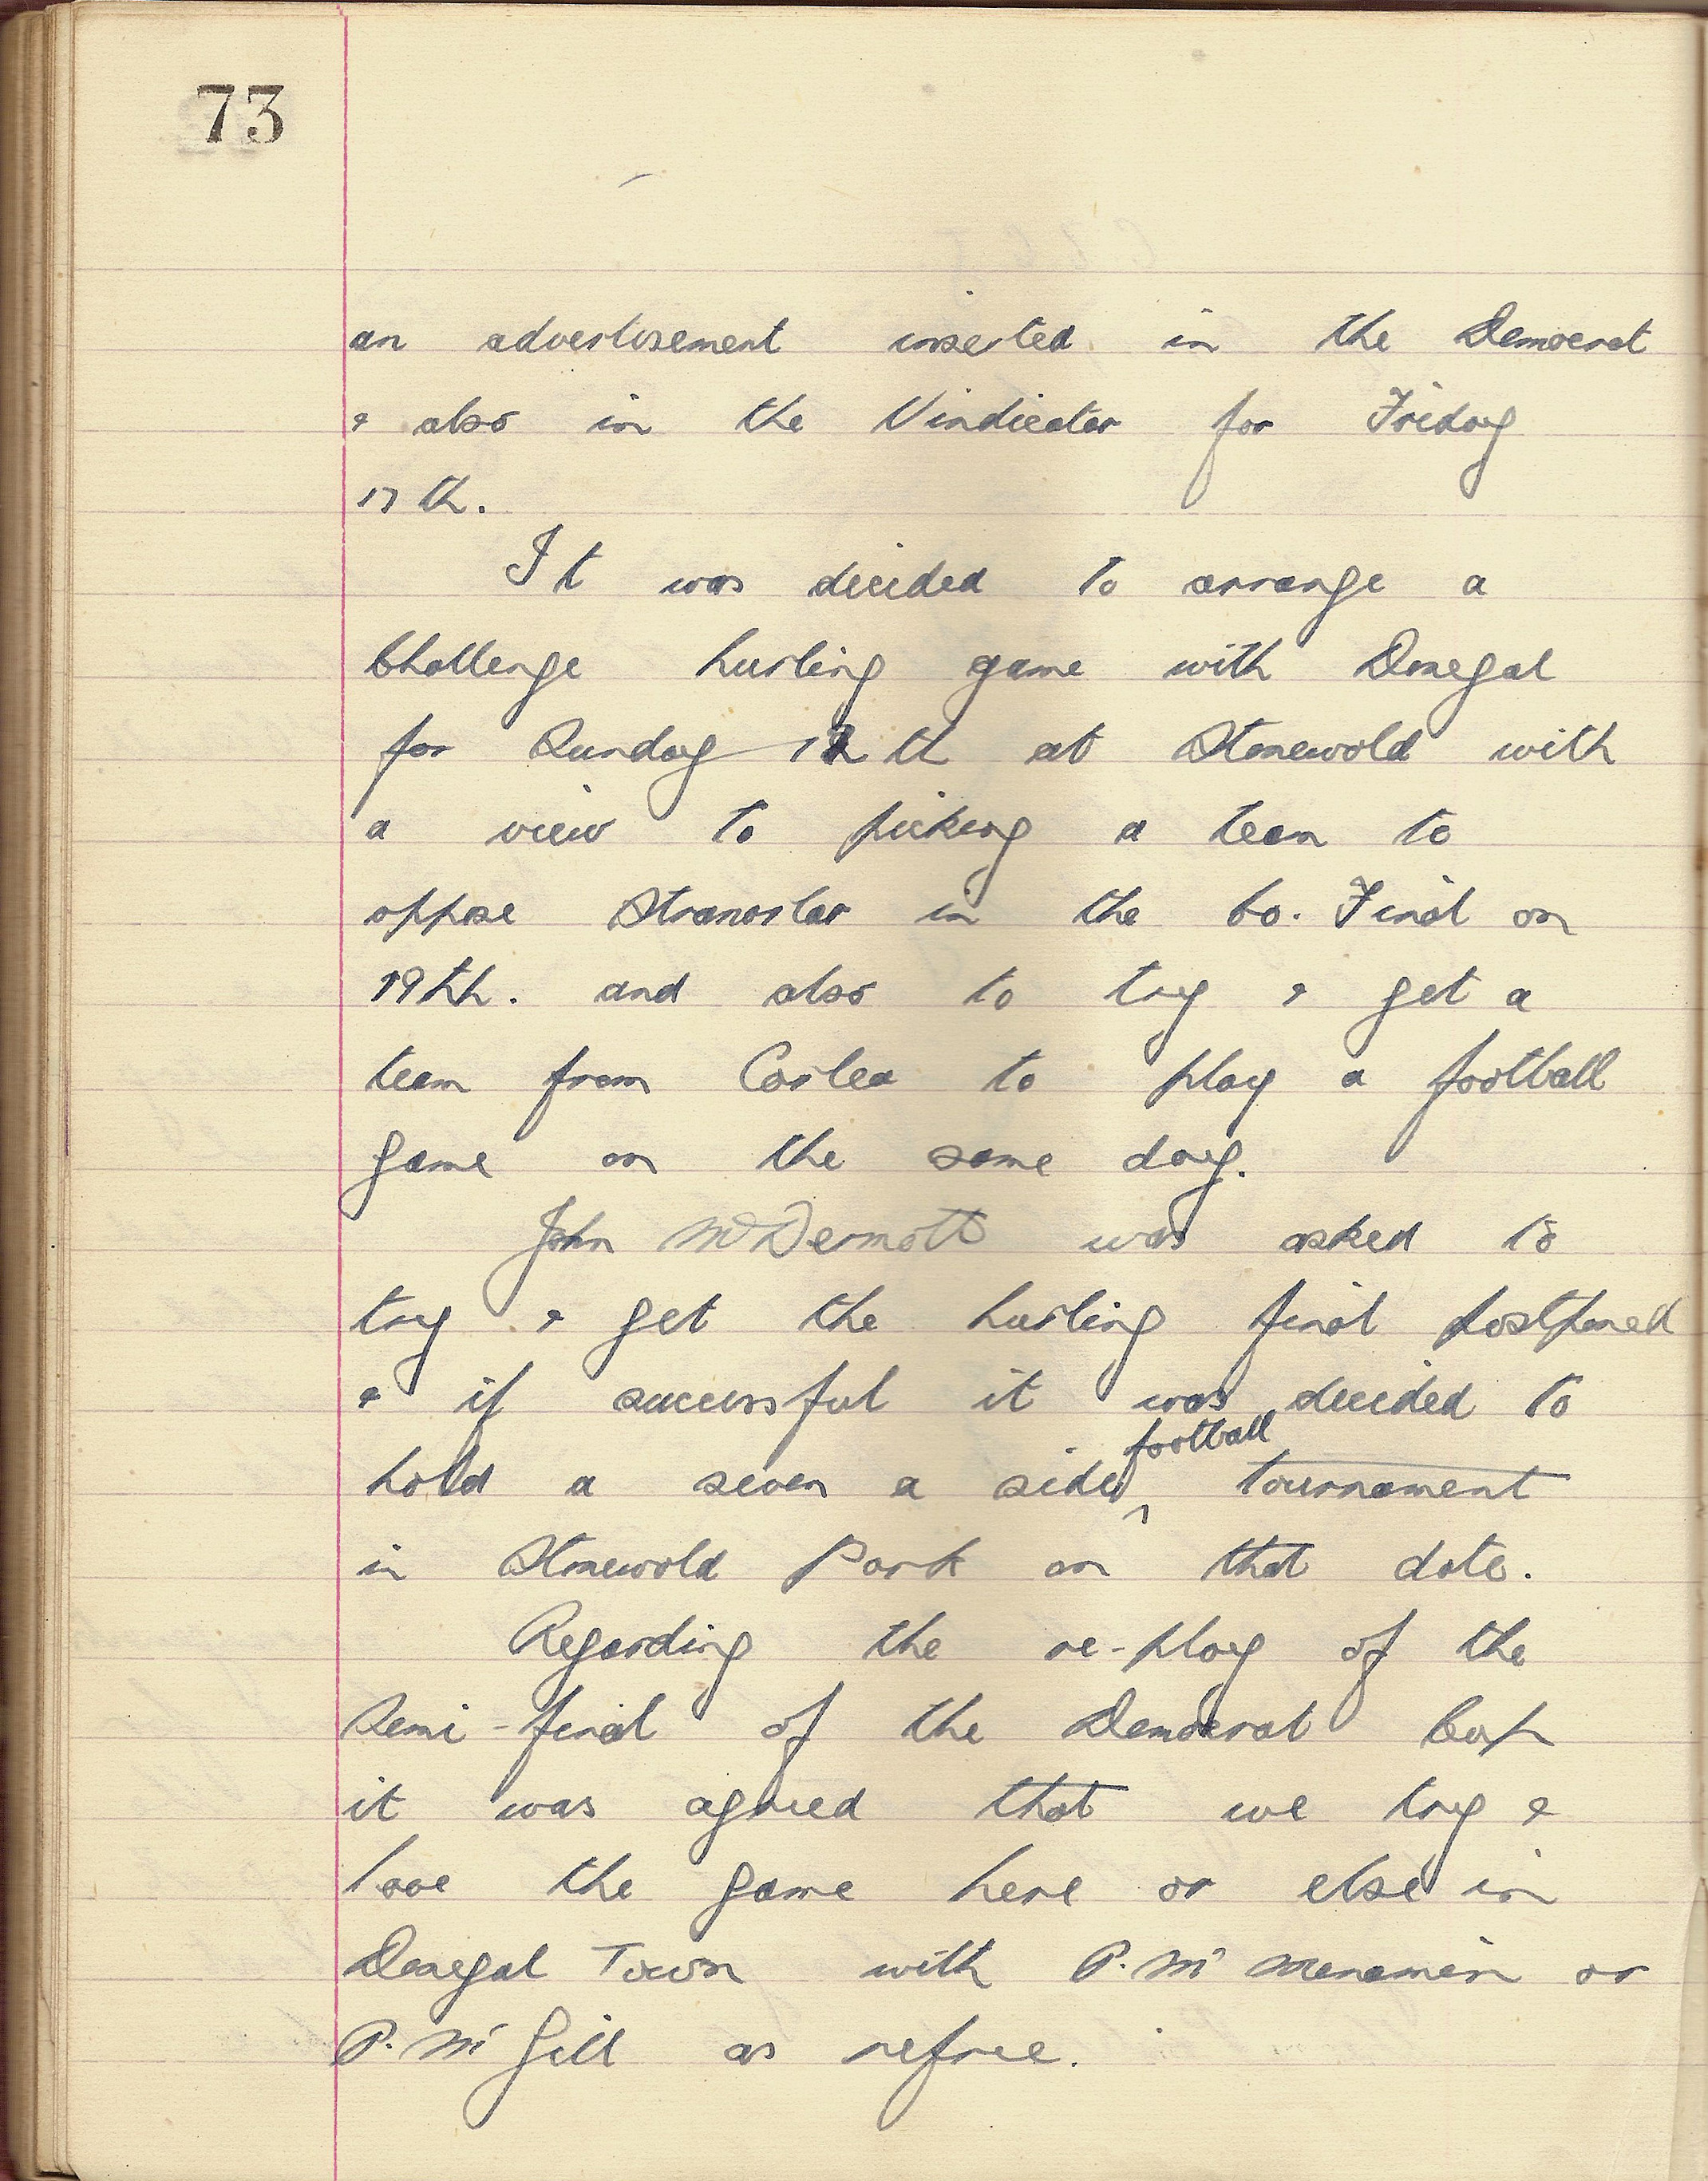 73
an advertisement inserted in the Democrat
& also in the Vindicator for Friday
17th.
It was decided to arrange a
Challenge hurling game with Donegal
for Sunday 12th at Stonewold with
a view to picking a team to
oppose Stranorlar in the Co. Final on
19th. and also to try & get a
team from Corlea to play a football
game on the same day.
John McDermott was asked to
try & get the hurling final postponed
& if successful it was decided to
hold a seven a side football tournament
in Stonewold Park on that date.
Regarding the re-play of the
Semi-final of the Democrat Cup
it was agreed that we try &
have the game here or else in
Donegal Town with P. Mc Menamin or
P. Mc Gill as refree.